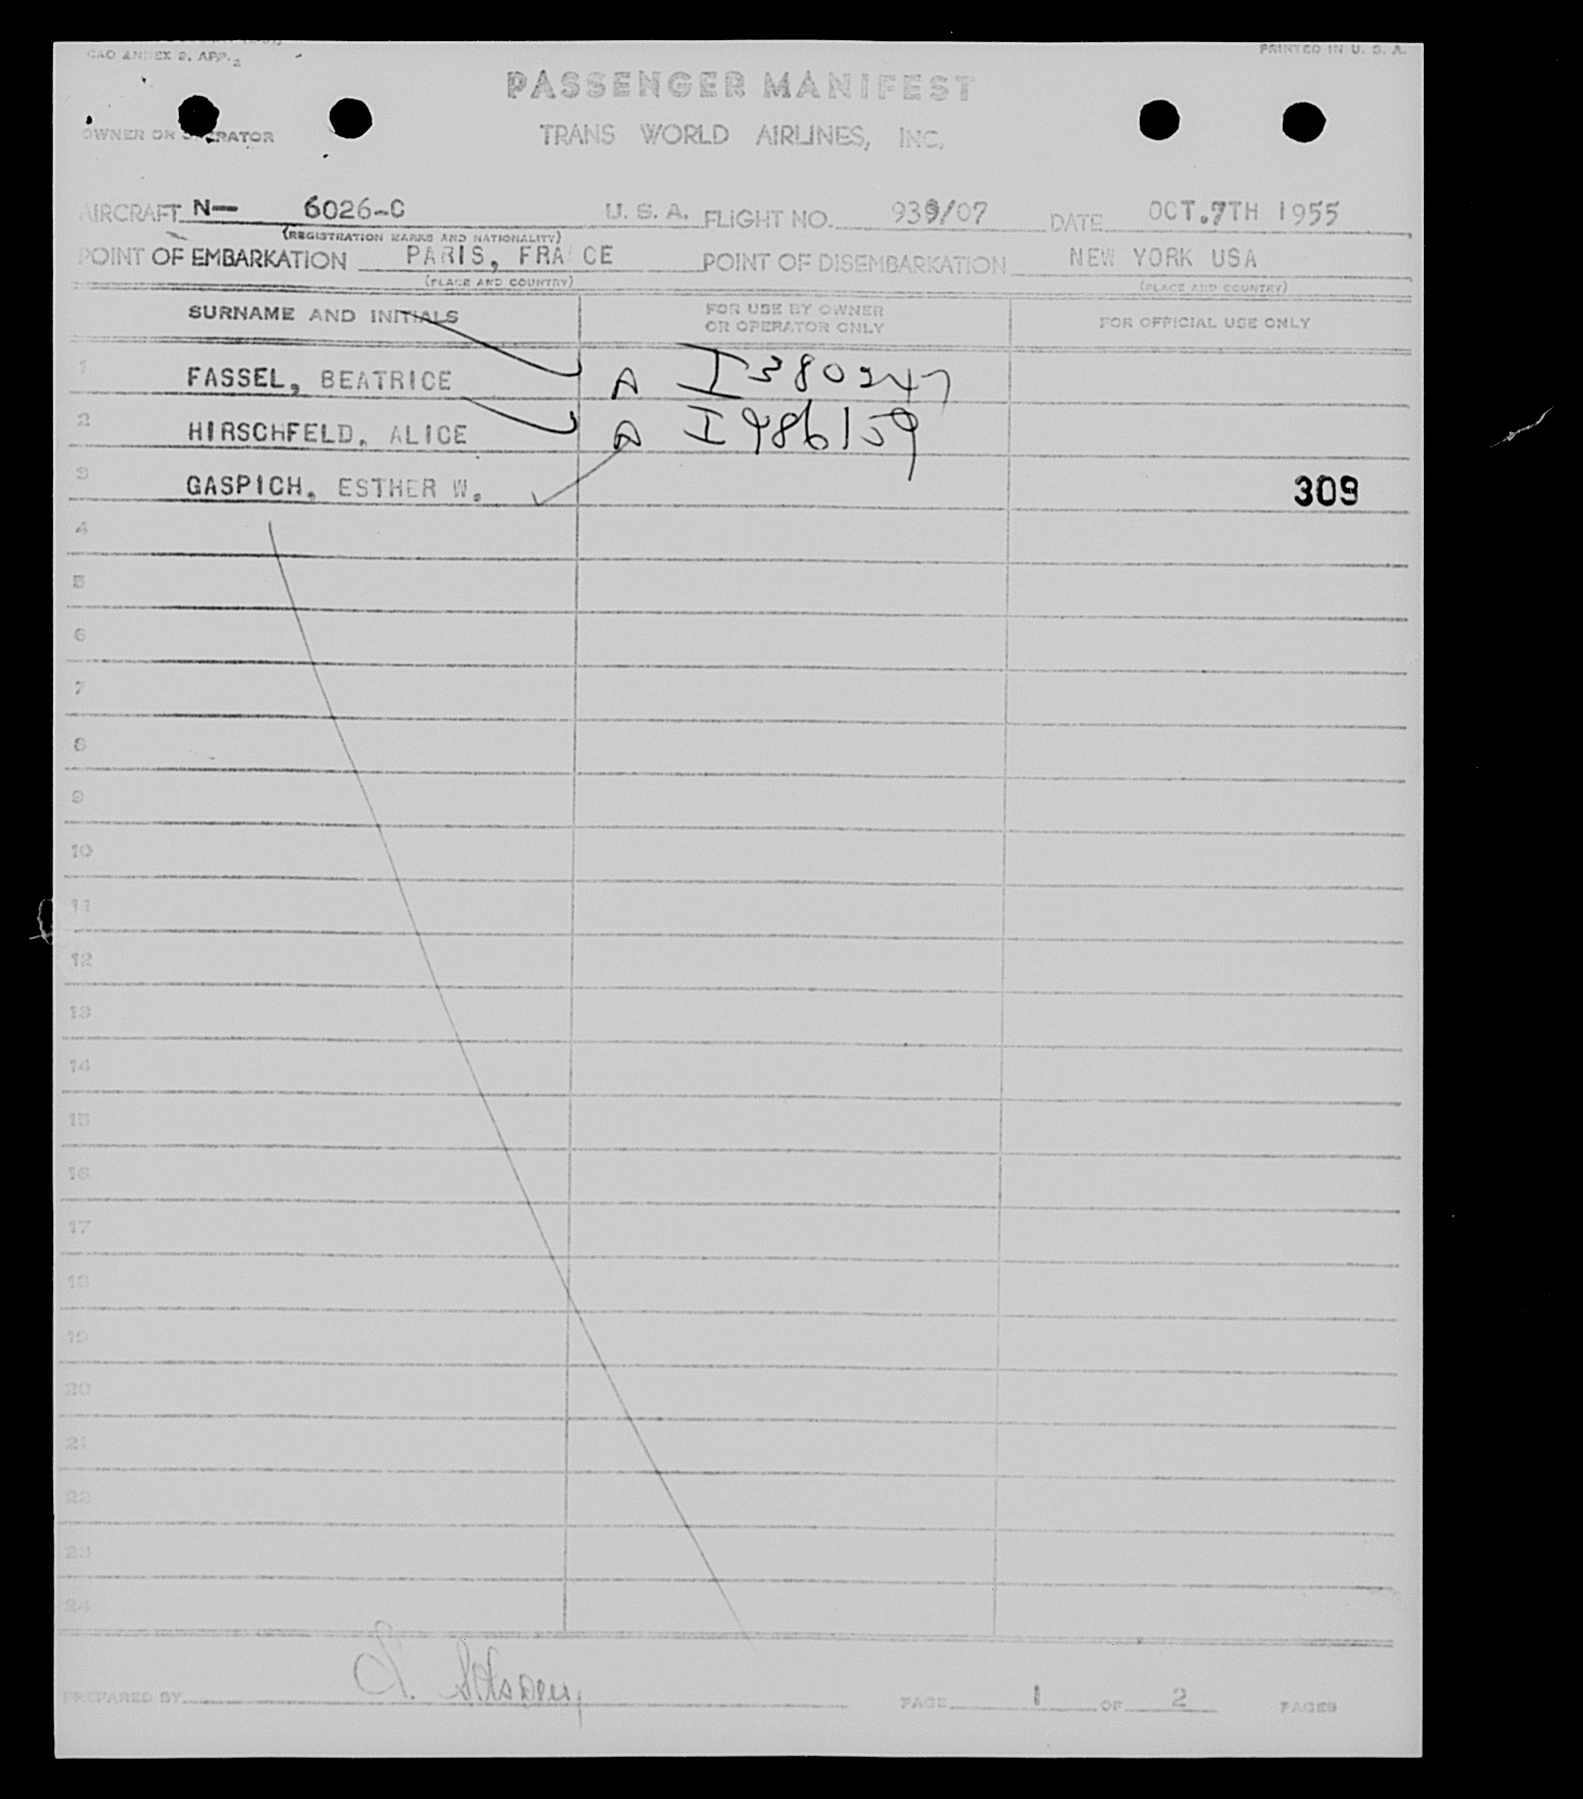 CAO ANNEX 9, APP. 2
PRINTED IN U. S. A.
PASSENGER MANIFEST
OWNER OR OPERATOR
TRANS WORLD AIRLINES, INC.
AIRCRAFT N— 6026-C U. S. A. FLIGHT NO. 939/07 DATE OCT.7TH 1955
(REGISTRATION MARKS AND NATIONALITY)
POINT OF EMBARKATION PARIS, FRA CE POINT OF DISEMBARKATION NEW YORK USA
(PLACE AND COUNTRY) (PLACE AND COUNTRY)
SURNAME AND INITIALS FOR USE BY OWNER OR OPERATOR ONLY FOR OFFICIAL USE ONLY
1 FASSEL, BEATRICE A I380247
2 HIRSCHFELD, ALICE A I986159
3 GASPICH, ESTHER W. 309
4
5
6
7
8
9
10
11
12
13
14
15
16
17
18
19
20
21
22
23
24
PREPARED BY PAGE 1 OF 2 PAGES